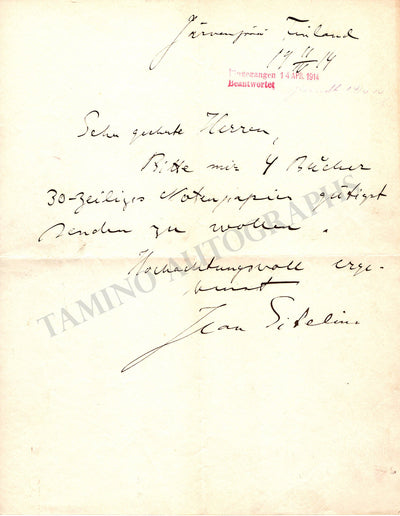 Järvenpää Finland
19 11/IV 14
Eingegangen 14 APR. 1914
Beantwortet
Sehr geehrte Herren,
Bitte mir 4 Bücher
30-zeiliges Notenpapier gütigst
senden zu wollen.
Hochachtungsvoll erge-
benst
Jean Sibelius
TAMINO AUTOGRAPHS